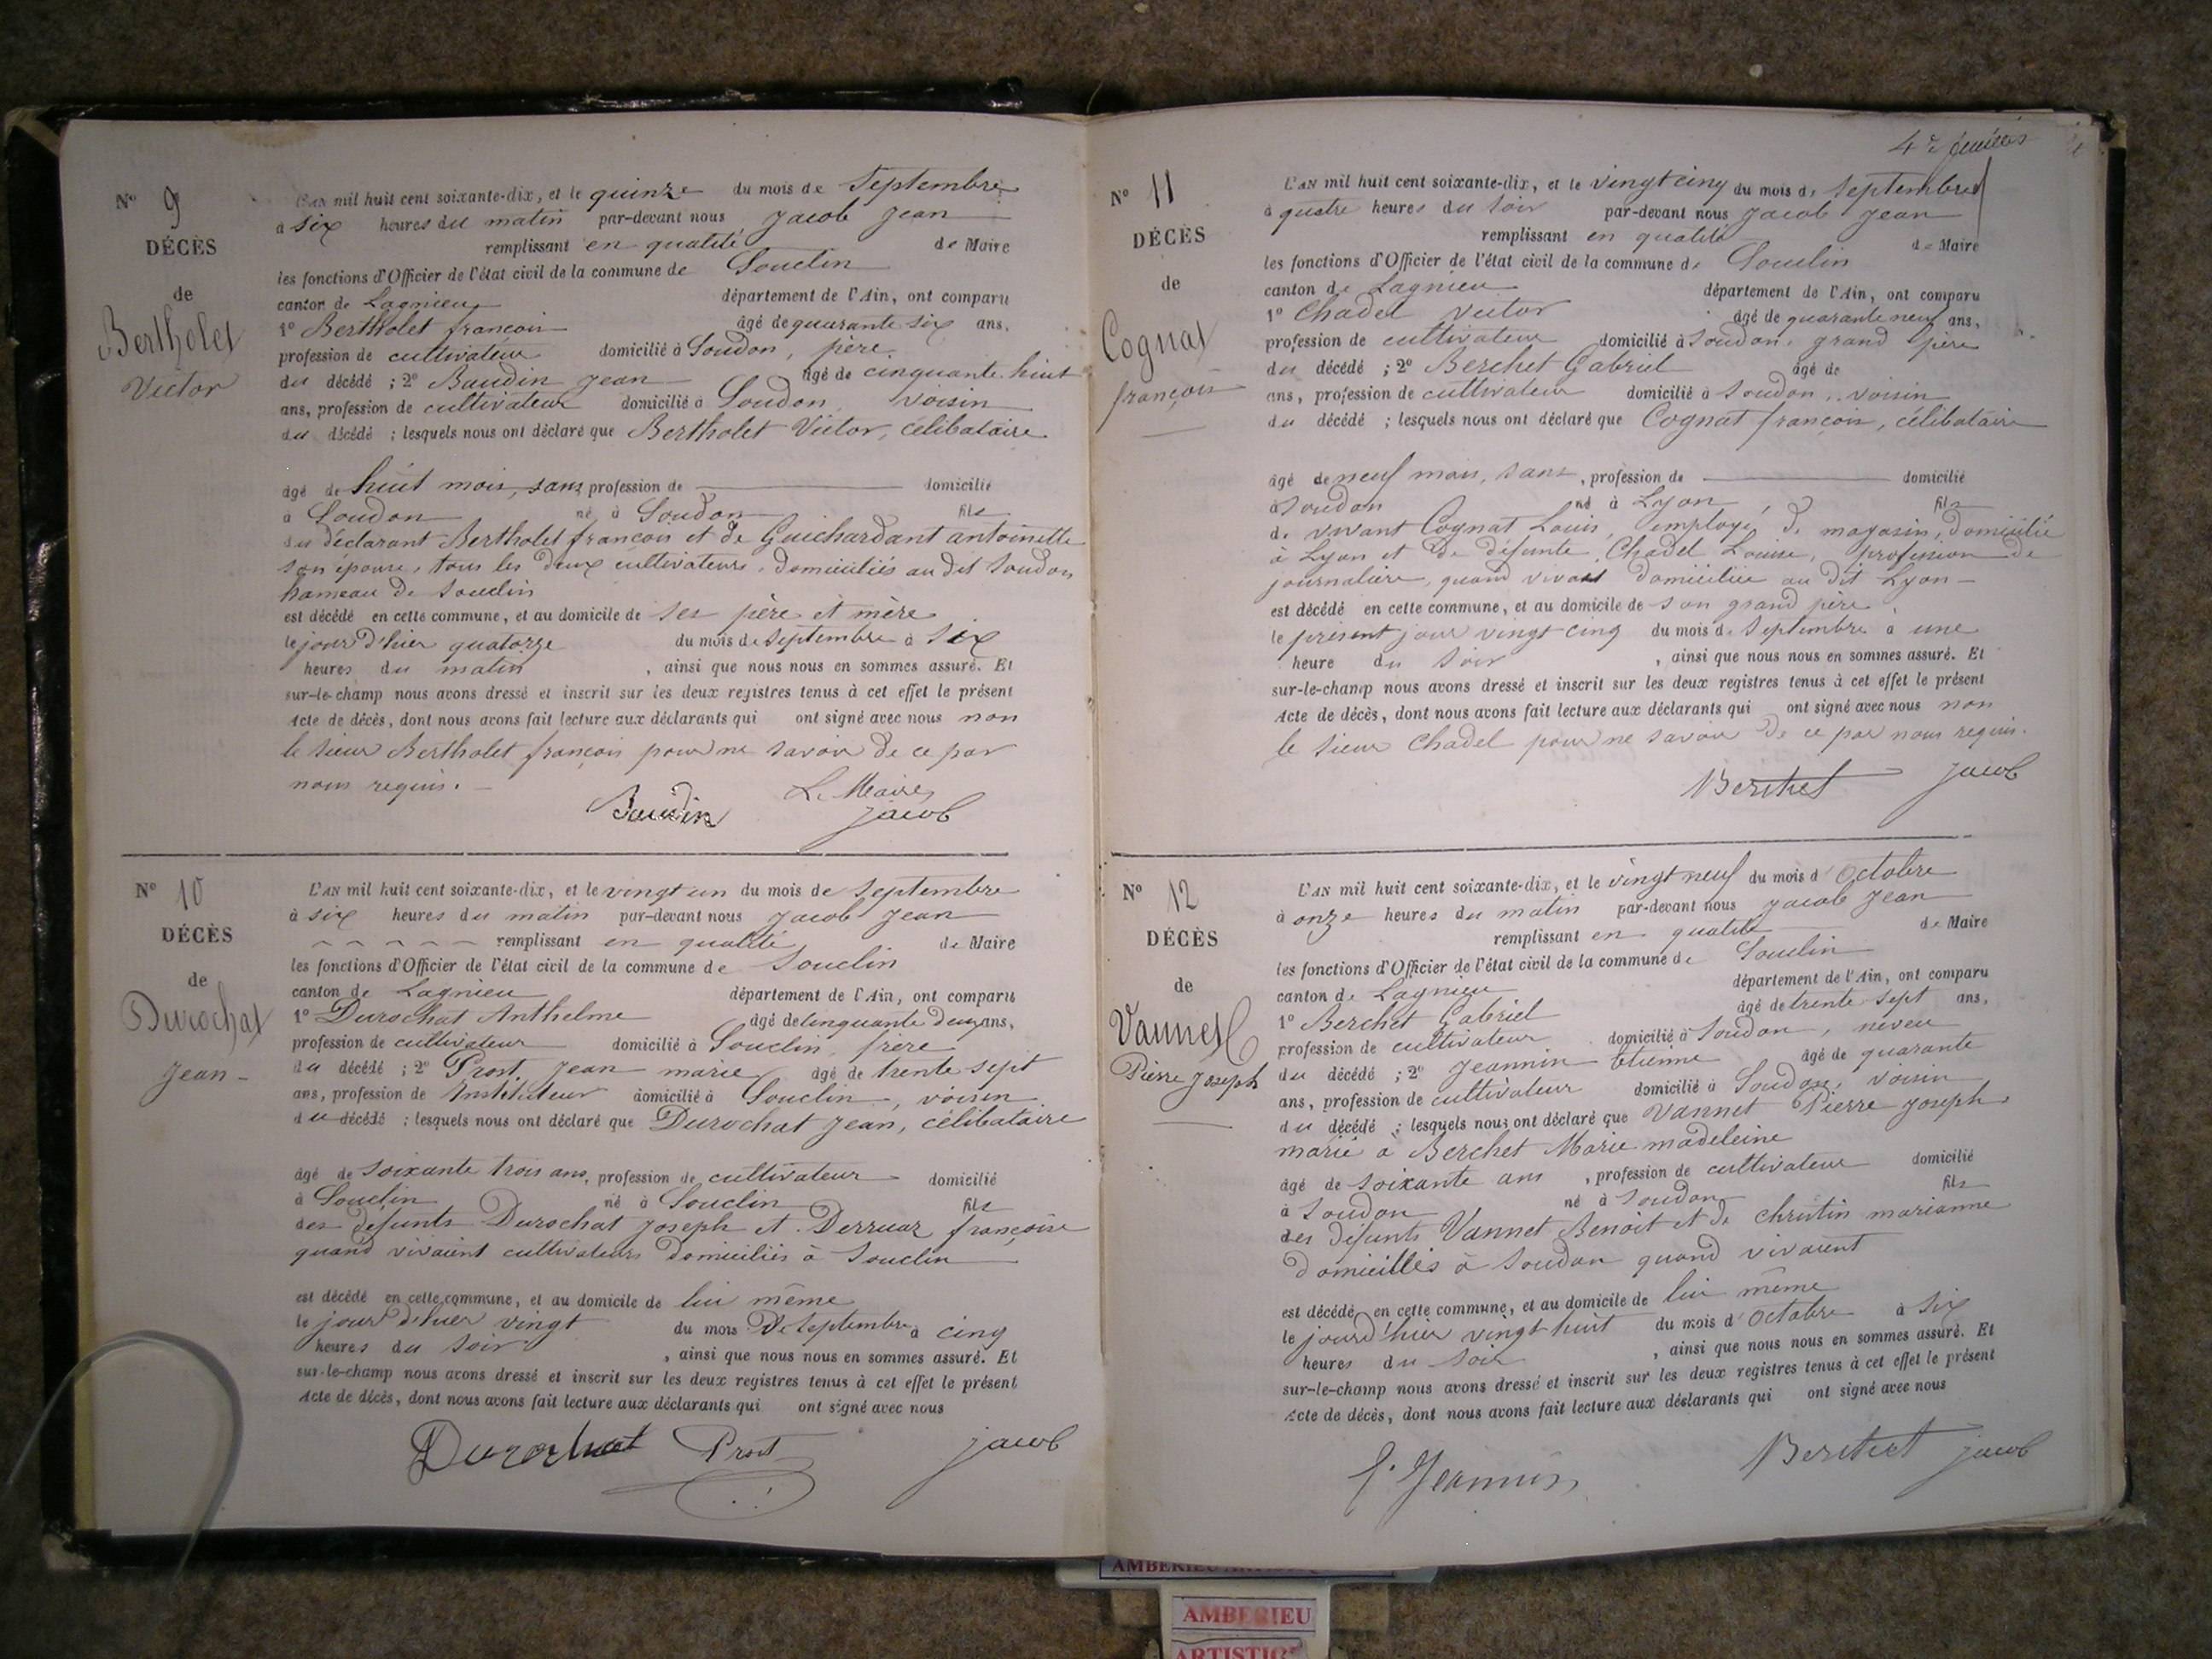 N° 9
DÉCÈS
de
Bertholet
Victor
L'AN mil huit cent soixante-dix, et le quinze du mois de Septembre
à six heures du matin par-devant nous Jacob Jean
remplissant en qualité de Maire
les fonctions d'Officier de l'état civil de la commune de Souclin
canton de Lagnieu département de l'Ain, ont comparu
1° Bertholet françois âgé de quarante six ans,
profession de cultivateur domicilié à Soudon, père
du décédé ; 2° Baudin Jean âgé de cinquante huit
ans, profession de cultivateur domicilié à Soudon, voisin
du décédé ; lesquels nous ont déclaré que Bertholet Victor, célibataire
âgé de huit mois, sans profession de domicilié
à Soudon né à Soudon fils
du déclarant Bertholet françois et de Guichardant antoinette
son épouse, tous les deux cultivateurs, domiciliés au dit Soudon
hameau de Souclin
est décédé en cette commune, et au domicile de ses père et mère
le jour d'hier quatorze du mois de Septembre à six
heures du matin , ainsi que nous nous en sommes assuré. Et
sur-le-champ nous avons dressé et inscrit sur les deux registres tenus à cet effet le présent
Acte de décès, dont nous avons fait lecture aux déclarants qui ont signé avec nous non
le sieur Bertholet françois pour ne savoir de ce par
nous requis.
Le Maire
Baudin Jacob
N° 10
DÉCÈS
de
Durochat
Jean
L'AN mil huit cent soixante-dix, et le vingt un du mois de Septembre
à six heures du matin par-devant nous Jacob Jean
remplissant en qualité de Maire
les fonctions d'Officier de l'état civil de la commune de Souclin
canton de Lagnieu département de l'Ain, ont comparu
1° Durochat Anthelme âgé de cinquante deux ans,
profession de cultivateur domicilié à Souclin, frère
du décédé ; 2° Prost Jean marie âgé de trente sept
ans, profession de Instituteur domicilié à Souclin, voisin
du décédé ; lesquels nous ont déclaré que Durochat Jean, célibataire
âgé de soixante trois ans, profession de cultivateur domicilié
à Souclin né à Souclin fils
des défunts Durochat Joseph et Derruaz françoise
quand vivaient cultivateurs domiciliés à Souclin
est décédé en cette commune, et au domicile de lui même
le jour d'hier vingt du mois de Septembre à cinq
heures du soir , ainsi que nous nous en sommes assuré. Et
sur-le-champ nous avons dressé et inscrit sur les deux registres tenus à cet effet le présent
Acte de décès, dont nous avons fait lecture aux déclarants qui ont signé avec nous
Durochat Prost Jacob
N° 11
DÉCÈS
de
Cognat
françois
L'AN mil huit cent soixante-dix, et le vingt cinq du mois de Septembre
à quatre heures du soir par-devant nous Jacob Jean
remplissant en qualité de Maire
les fonctions d'Officier de l'état civil de la commune de Souclin
canton de Lagnieu département de l'Ain, ont comparu
1° Chadel Victor âgé de quarante neuf ans,
profession de cultivateur domicilié à Soudon, grand père
du décédé ; 2° Berchet Gabriel âgé de
ans, profession de cultivateur domicilié à Soudon, voisin
du décédé ; lesquels nous ont déclaré que Cognat françois, célibataire
âgé de neuf mois, sans , profession de domicilié
à Soudon né à Lyon fils
de vivant Cognat Louis, employé de magasin, domicilié
à Lyon et de défunte Chadel Louise, profession de
journalière, quand vivait domiciliée au dit Lyon
est décédé en cette commune, et au domicile de son grand père
le présent jour vingt cinq du mois de Septembre à une
heure du soir , ainsi que nous nous en sommes assuré. Et
sur-le-champ nous avons dressé et inscrit sur les deux registres tenus à cet effet le présent
Acte de décès, dont nous avons fait lecture aux déclarants qui ont signé avec nous non
le sieur Chadel pour ne savoir de ce par nous requis.
Berchet Jacob
N° 12
DÉCÈS
de
Vannet
Pierre Joseph
L'AN mil huit cent soixante-dix, et le vingt neuf du mois d'Octobre
à onze heures du matin par-devant nous Jacob Jean
remplissant en qualité de Maire
les fonctions d'Officier de l'état civil de la commune de Souclin
canton de Lagnieu département de l'Ain, ont comparu
1° Berchet Gabriel âgé de trente sept ans,
profession de cultivateur domicilié à Soudon, neveu
du décédé ; 2° Jeannin Etienne âgé de quarante
ans, profession de cultivateur domicilié à Soudon, voisin
du décédé ; lesquels nous ont déclaré que Vannet Pierre Joseph
marié à Berchet Marie madeleine
âgé de soixante ans , profession de cultivateur domicilié
à Soudon né à Soudon fils
des défunts Vannet Benoit et de Christin marianne
domiciliés à Soudon quand vivaient
est décédé en cette commune, et au domicile de lui même
le jour d'hier vingt huit du mois d'Octobre à six
heures du soir , ainsi que nous nous en sommes assuré. Et
sur-le-champ nous avons dressé et inscrit sur les deux registres tenus à cet effet le présent
Acte de décès, dont nous avons fait lecture aux déclarants qui ont signé avec nous
Jeannin Berchet Jacob
AMBERIEU
ARTISTIQUE